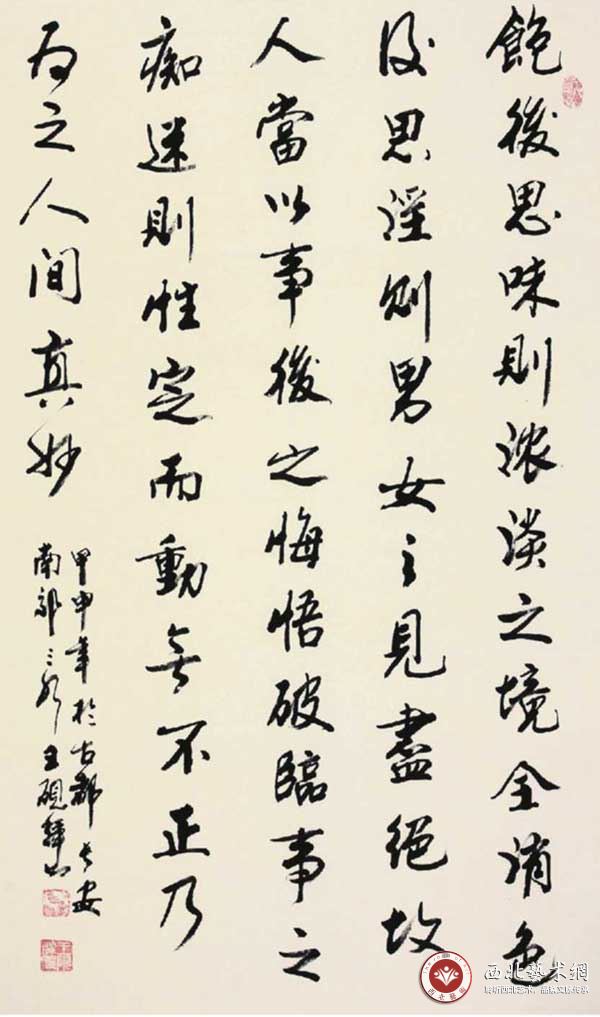 飽後思味則濃淡之境全消色
後思淫則男女之見盡絕故
人當以事後之悔悟破臨事之
痴迷則性定而動無不正乃
為之人间真妙
甲申年於古都長安
南郊之
王硯
西北藝術網
聆听西北艺术、品秦文陕传承
西北藝術